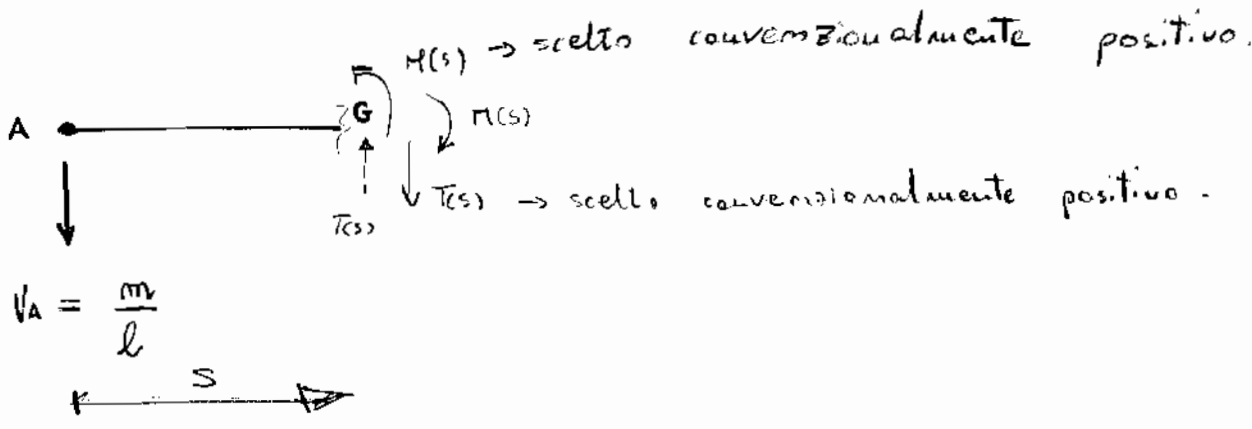 M(s) → scelto convenzionalmente positivo.
A G M(s)
T(s) T(s) → scelto convenzionalmente positivo.
V_A = m/l
S